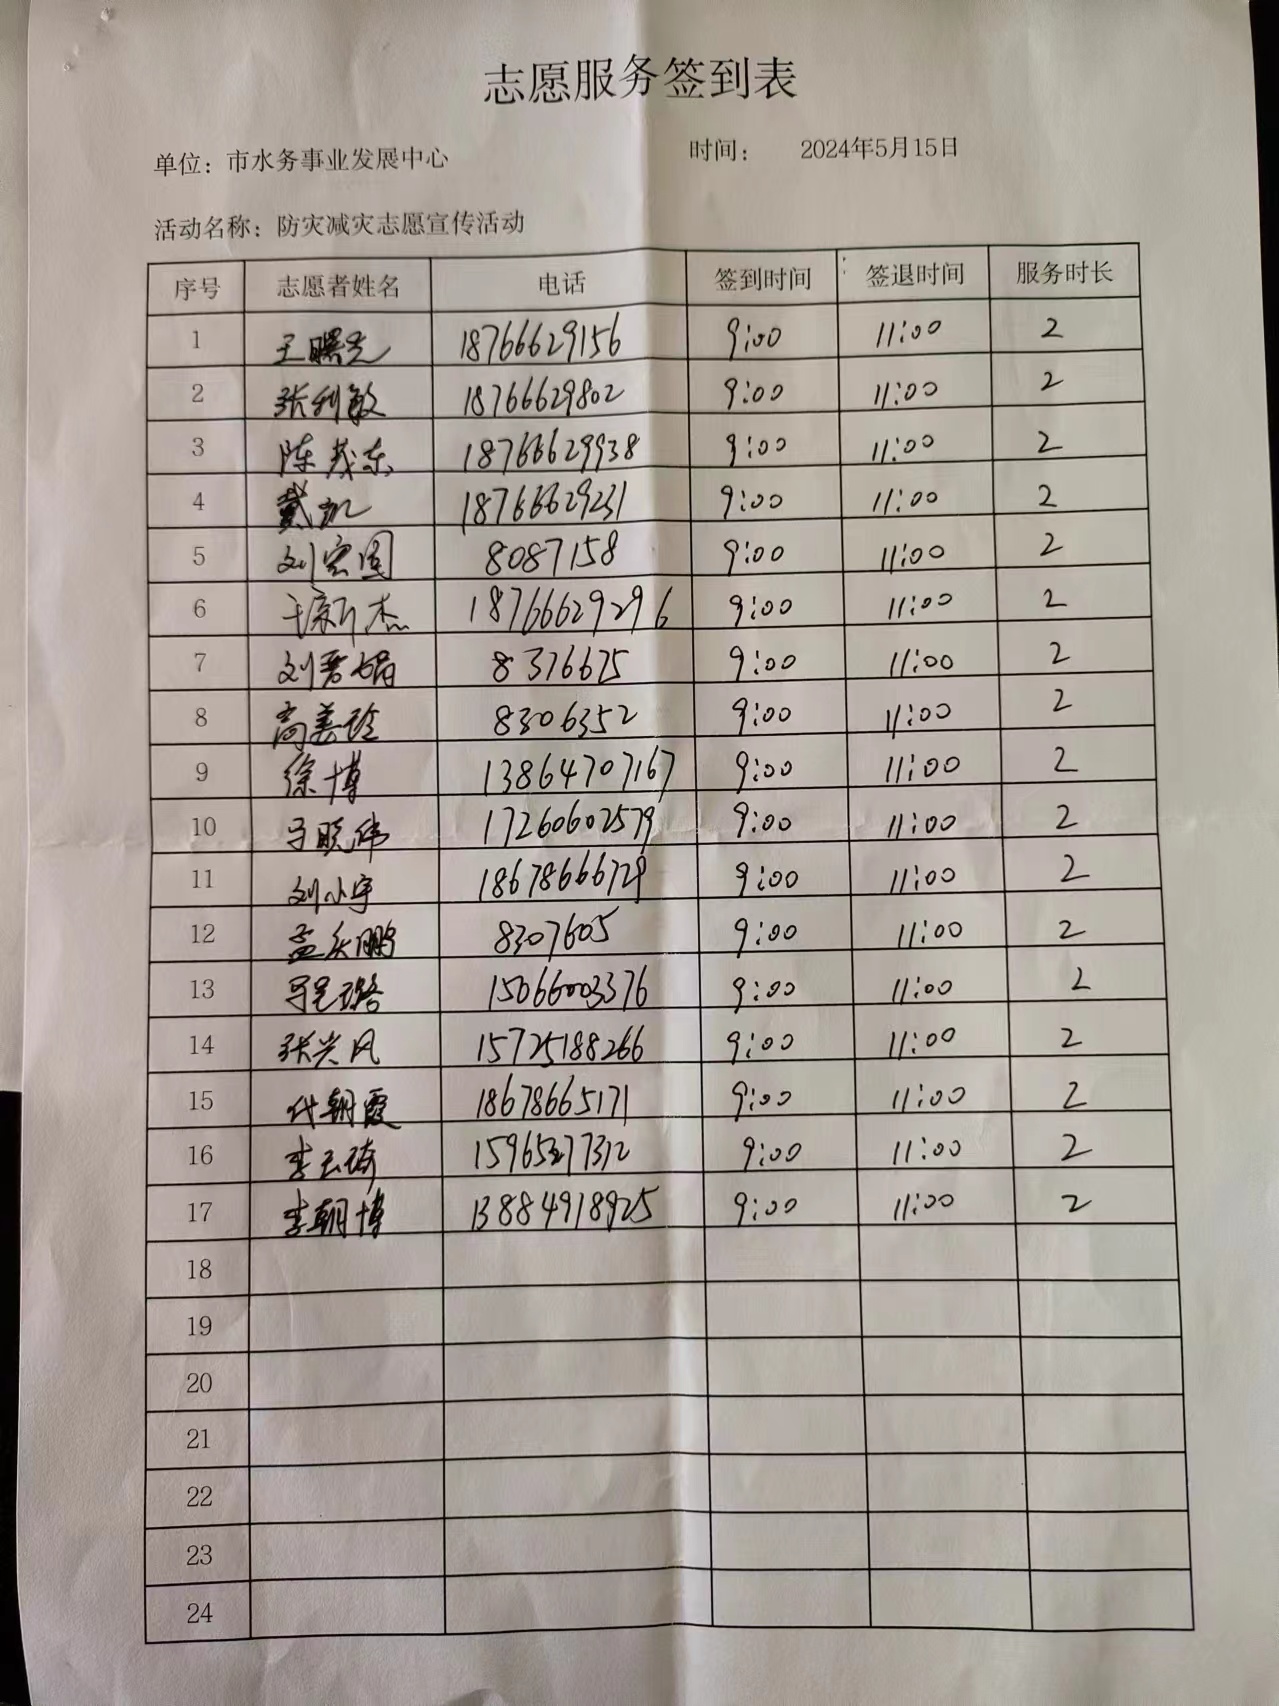 志愿服务签到表
单位：市水务事业发展中心 时间： 2024年5月15日
活动名称：防灾减灾志愿宣传活动
序号 志愿者姓名 电话 签到时间 签退时间 服务时长
1 王曙光 18766629156 9:00 11:00 2
2 张利敏 18766629802 9:00 11:00 2
3 陈茂东 18766629938 9:00 11:00 2
4 戴凯 18766629231 9:00 11:00 2
5 刘宏图 8087158 9:00 11:00 2
6 于新杰 18766629296 9:00 11:00 2
7 刘君娟 8376675 9:00 11:00 2
8 高善玲 8306352 9:00 11:00 2
9 徐博 13864707167 9:00 11:00 2
10 于晓伟 17260602579 9:00 11:00 2
11 刘小宇 18678666729 9:00 11:00 2
12 孟庆鹏 8307605 9:00 11:00 2
13 15066003376 9:00 11:00 2
14 张兴风 15725188266 9:00 11:00 2
15 代朝霞 18678665171 9:00 11:00 2
16 李玉琦 15965277312 9:00 11:00 2
17 李朝博 13884918925 9:00 11:00 2
18
19
20
21
22
23
24